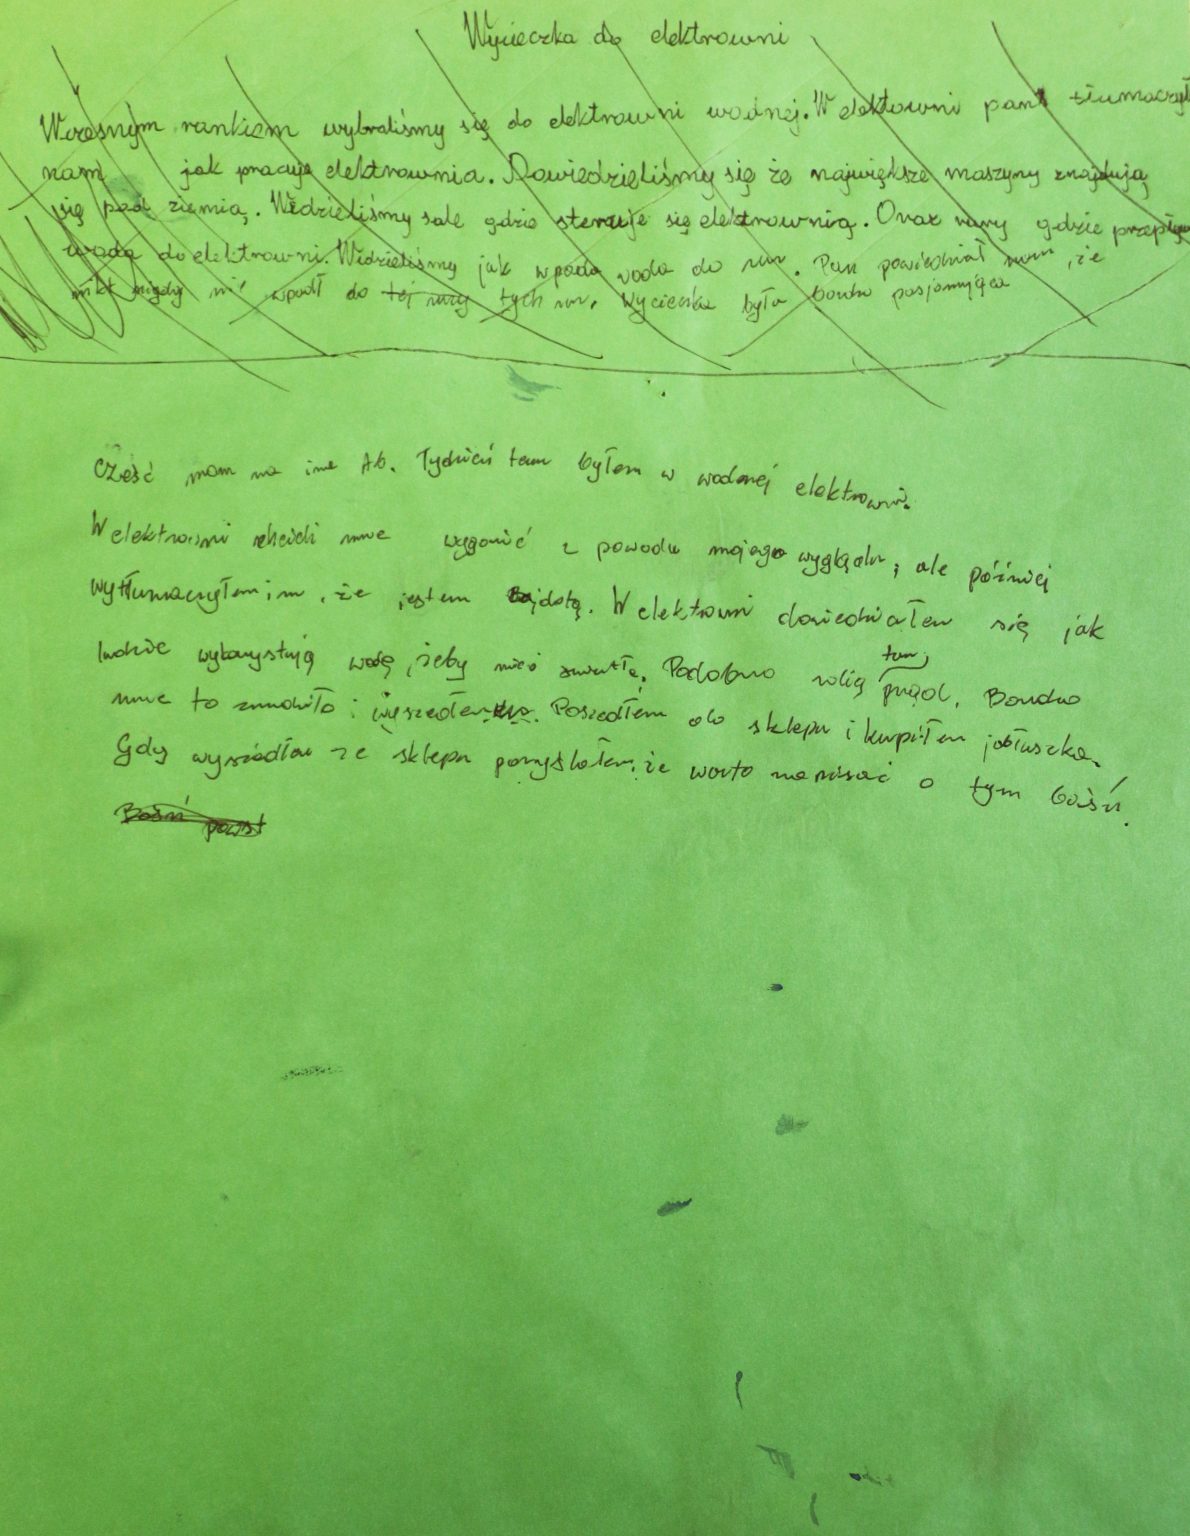 Wycieczka do elektrowni
Wczesnym rankiem wybraliśmy się do elektrowni wodnej. W elektowni pan tłumaczył
nam jak pracuje elektrownia. Dowiedzieliśmy się że największe maszyny znajdują
się pod ziemią. Widzieliśmy sale gdzie steruje się elektrownią. Oraz rury gdzie przepływa
woda do elektrowni. Widzieliśmy jak wpada woda do rur. Pan powiedział nam, że
nikt nigdy nie wpadł do tej rury tych rur. Wycieczka była bardzo pasjonująca
Cześć mam na ime Ab. Tydzień temu byłem w wodnej elektrowni.
W elektrowni chcieli mnie wygonić z powodu mojego wyglądu, ale później
wytłumaczyłem im, że jestem bajdotą. W elektowni dowiedziałem się jak
ludzie wykorzystują wodę, żeby mieć światło. Podobno robią tam prąd. Bardzo
mnie to znudziło i wyszedłem. Poszedłem do sklepu i kupiłem jabłuszka.
Gdy wyszedłem ze sklepu pomyślałem, że warto napisać o tym baśń.
Baśń powst